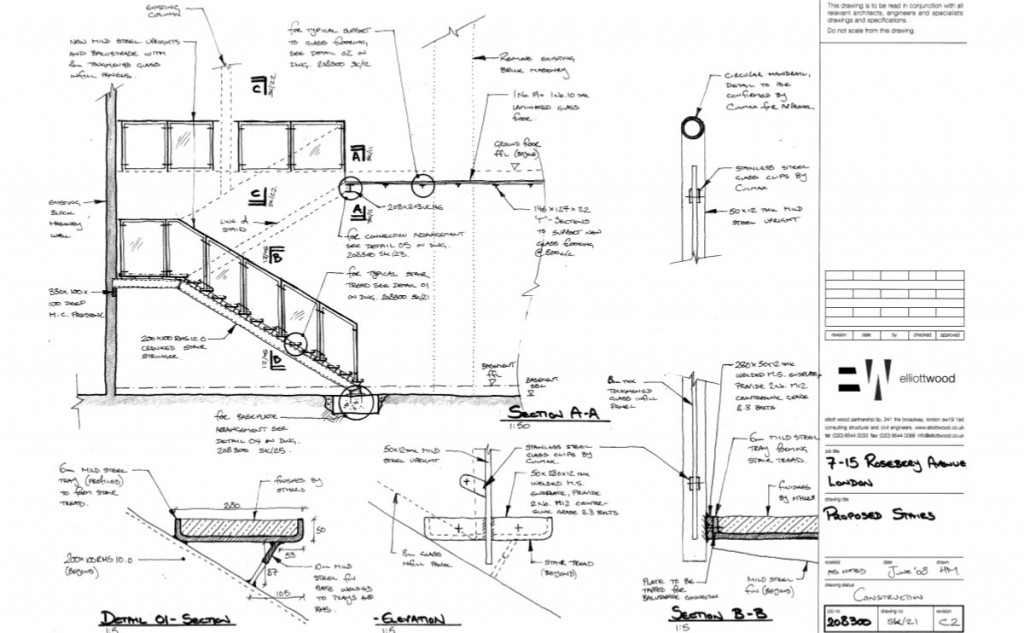 EXISTING
COLUMN
NEW MILD STEEL UPRIGHTS
AND BALUSTRADE WITH
8mm TOUGHENED GLASS
INFILL PANELS.
FOR TYPICAL SUPPORT
TO GLASS FLOORING
SEE DETAIL 02 IN
DWG. 208300 SK/12
REMOVE EXISTING
BRICK MASONRY
LAMINATED GLASS
FLOOR.
GROUND FLOOR
FFL (BEYOND)
C
SK/22
A
SK/11
C
SK/22
A
SK/11
LINE OF
STAIR
FOR CONNECTION ARRANGEMENT
SEE DETAIL 05 IN DWG.
208300 SK/25.
146 x 127 x 22
'T' - SECTIONS
TO SUPPORT NEW
GLASS FLOORING
EXISTING
MASONRY
WALL
B
SK/21
FOR TYPICAL STAIR
TREAD SEE DETAIL 01
IN DWG. 208300 SK/21
100 DEEP
200x100 RHS 10.0
CRANKED STAIR
STRINGER
B
SK/21
BASEMENT
FFL
BASEMENT
SSL
FOR BASEPLATE
ARRANGEMENT SEE
DETAIL 04 IN DWG.
208300 SK/25
SECTION A-A
1:50
CIRCULAR HANDRAIL,
DETAIL TO BE
CONFIRMED BY
CULMAX FOR APPROVAL.
STAINLESS STEEL
GLASS CLIPS BY
CULMAX
50x12 THK MILD
STEEL UPRIGHT
6mm MILD STEEL
TRAY (PROFILED)
TO FORM STAIR
TREAD.
FINISHED BY
OTHERS
280
50
53
87
105
200x100 RHS 10.0
(BEYOND)
10mm MILD
STEEL FIN
PLATE WELDED
TO TRAYS AND
RHS.
DETAIL 01 - SECTION
1:5
50x12 THK MILD
STEEL UPRIGHT
STAINLESS STEEL
GLASS CLIPS BY
CULMAX.
50x280x12 THK
WELDED M.S.
ENDPLATE, PROVIDE
2 No. M12
8mm GLASS
INFILL PANEL
STAIR TREAD
(BEYOND)
- ELEVATION
1:5
8mm THK
TOUGHENED
GLASS INFILL
PANEL
280x50x12 THK
WELDED M.S. ENDPLATE
PROVIDE 2 No. M12
COUNTERSUNK GRADE
8.8 BOLTS
6mm MILD STEEL
TRAY FORMING
STAIR TREAD.
FINISHES
BY OTHERS
PLATE TO BE
TAPPED FOR
BALUSTRADE CONNECTION
MILD STEEL
FIN (BEYOND)
SECTION B-B
1:5
This drawing is to be read in conjunction with all
relevant architects, engineers and specialists
drawings and specifications.
Do not scale from this drawing.
revision date by checked approved
elliottwood
elliott wood partnership llp, 241 the broadway, london sw19 1sd
consulting structural and civil engineers. www.elliottwood.co.uk
tel: (020) 8544 0033 fax: (020) 8544 0066 info@elliottwood.co.uk
job title
7-15 ROSEBERY AVENUE
LONDON
drawing title
PROPOSED STAIRS
scale(s) date drawn
AS NOTED JUNE '08 HM
drawing status
CONSTRUCTION
job no drawing no revision
208300 SK/21 C2